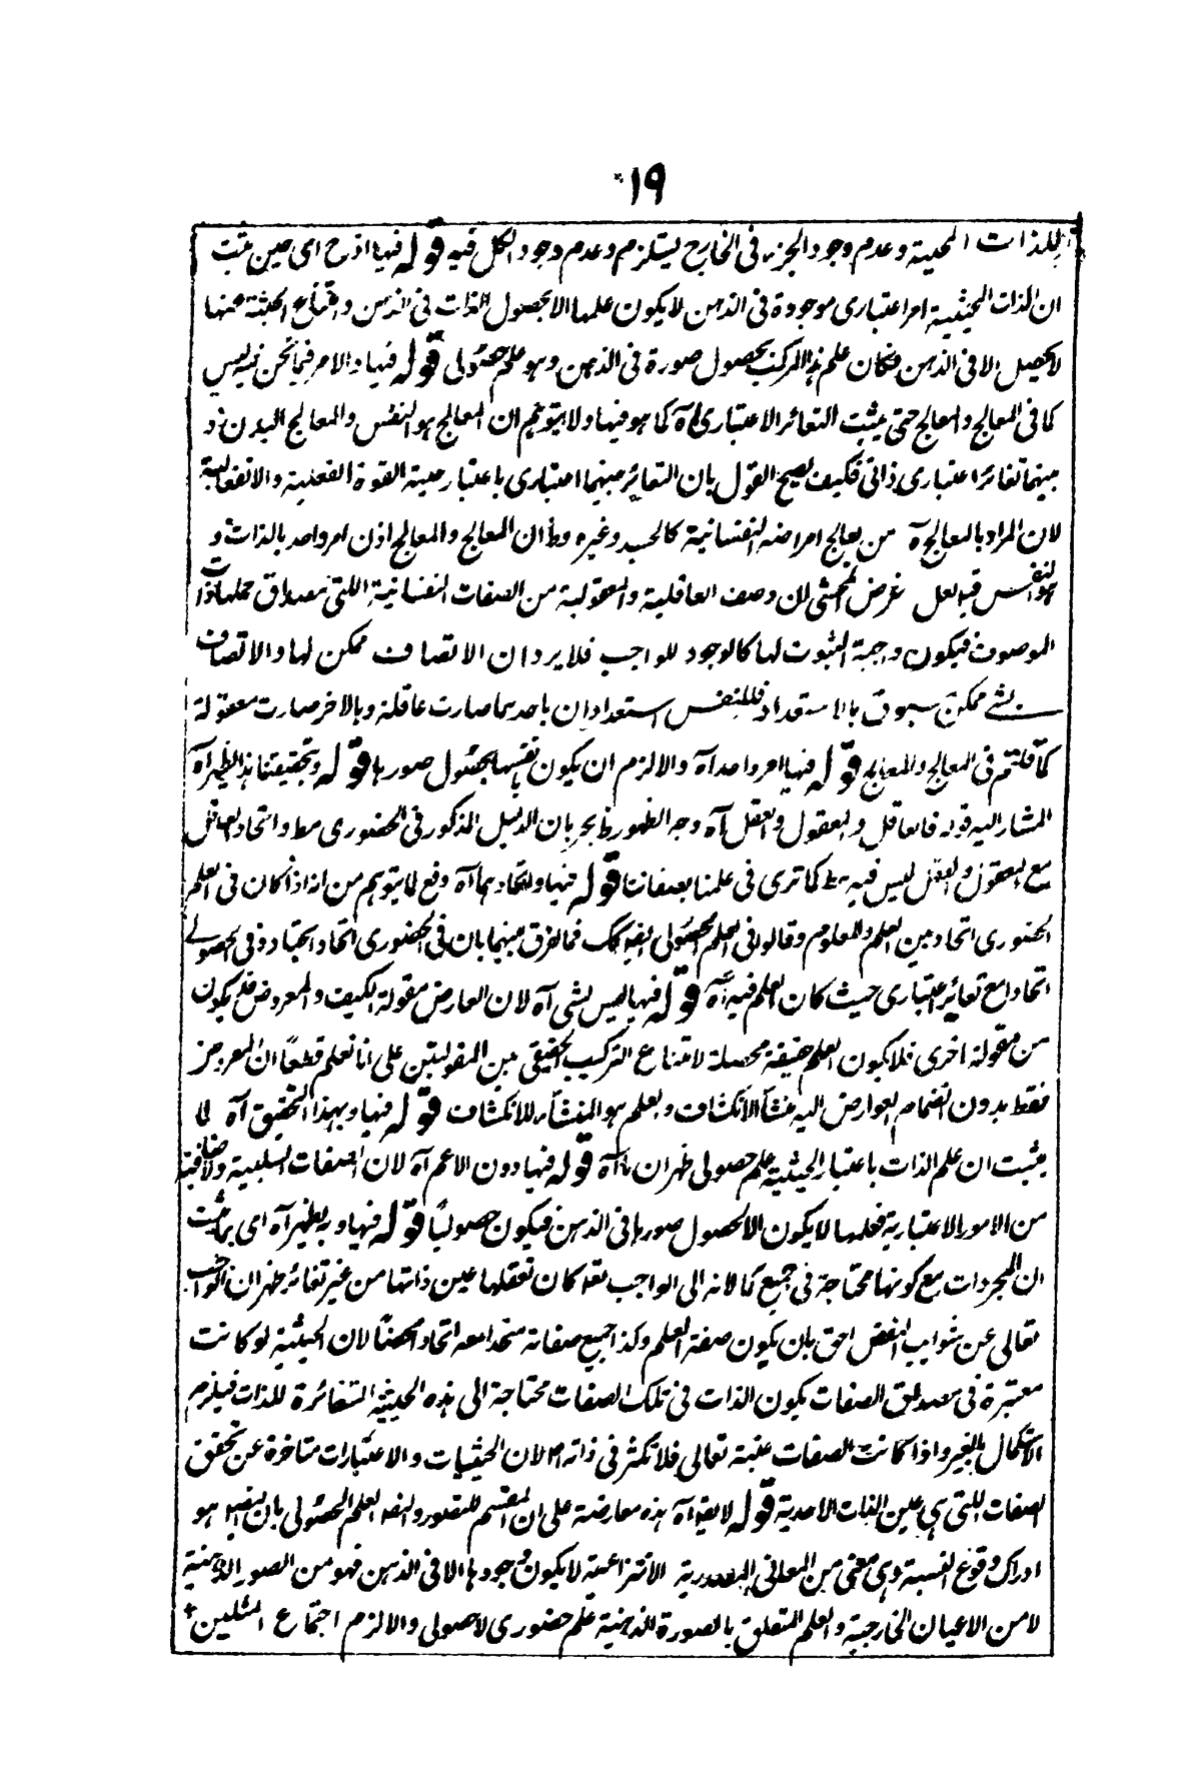 ١٩
للذات المحيثة وعدم وجود الجزء فى الخارج يستلزم وعدم وجود الكل فيه قوله فيها اذ ح اى حين يثبت
ان الذات الحيثية امر اعتبارى موجودة فى الذهن لا يكون علمها الا بحصول الذات فى الذهن و
لا يحصل الا فى الذهن فكان علم هذا المركب بحصول صورة فى الذهن وهو علم حصولى قوله فيها والامر فيما نحن فيه ليس
كما فى المعالج والمعالج حتى يثبت التغائر الاعتبارى آه كما هو فيها ولا يتوهم ان المعالج هو النفس والمعالج البدن و
بينهما تغائر اعتبارى ذاتى فكيف يصح القول بان التغاير بينهما اعتبارى باعتبار حيثية القوة الفعلية والانفعالية
لان المراد بالمعالج آه من يعالج امراضه النفسانية كالحسد وغيره وظ ان المعالج والمعالج اذن امر واحد بالذات و
هو النفس قيل لعل غرض المحشى ان وصف العاقلية والمعقولية من الصفات النفسانية اللتى مصداق حملها ذات
الموصوف فيكون واجبة الثبوت لها كالوجود للواجب فلا يرد ان الاتصاف ممكن لها والاتصاف
بشئ ممكن مسبوق بالاستعداد فللنفس استعدادان باحدهما صارت عاقلة وبالاخر صارت معقولة
كما قلتم فى المعالج والمعالج قوله فيها امر واحد آه والا لزم ان يكون نفسها بحصول صورها قوله وتحقيقنا هذا يظهر آه
المشار اليه قوله فالعاقل والمعقول والعقل آه وجه الظهور ظ بجريان الدليل المذكور فى الحضورى مط واتحاد العاقل
مع المعقول والعقل ليس فيه مط كما ترى فى علمنا بصفاتنا قوله فيها واتحادهما آه دفع لما يتوهم من انه اذا كان فى العلم
الحضورى اتحاد بين العلم والمعلوم وقالوا فى العلم الحصولى ايضا كك فما الفرق بينهما بان فى الحضورى اتحادا بحتا دون فى الحصولى
اتحاد مع تغائر اعتبارى حيث كان العلم فيه آه قوله فيها ليس بشى آه لان العارض مقولة الكيف والمعروض قد يكون
من مقولة اخرى فلا يكون العلم حقيقة محصلة لامتناع التركيب الحقيقى بين المقولتين على انا نعلم قطعًا ان المعروض
فقط بدون انضمام العوارض اليه منشأ الانكشاف والعلم هو المنشأ للانكشاف قوله فيها وبهذا التحقيق آه لما
يثبت ان علم الذات باعتبار الحيثية علم حصولى ظهر ان ما آه قوله فيها دون الاعم آه لان الصفات السلبية والاضافية
من الامور الاعتبارية فعلمها لا يكون الا بحصول صورها فى الذهن فيكون حصوليًا قوله فيها وبه يظهر آه اى بما يثبت
ان المجردات مع كونها محتاجة فى جميع كمالاته الى الواجب تعه كان تعقلها عين ذاتها من غير تغائر ظهر ان الواجب
تعالى عن شوايب النقص احق بان يكون صفة العلم وكذا جميع صفاته متحدا معه اتحادا محضًا لان الحيثية لو كانت
معتبرة فى مصداق الصفات يكون الذات فى تلك الصفات محتاجة الى هذه الحيثية المتغائرة للذات فيلزم
الاستكمال بالغير واذا كانت الصفات عينه تعالى فلا تكثر فى ذاته اه لان الحيثيات والاعتبارات متاخرة عن تحقق
الصفات اللتى هى عين الذات الاحدية قوله لا يقه آه هذه معارضة على ان المقسم للتصور والتصـ العلم الحصولى بان التصـ هو
ادراك وقوع النسبة وهى معنى من المعانى المصدرية الانتزاعية لا يكون وجودها الا فى الذهن فهو من الصور الذهنية
لا من الاعيان الخارجية والعلم المتعلق بالصورة الذهنية علم حضورى لا حصولى والا لزم اجتماع المثلين